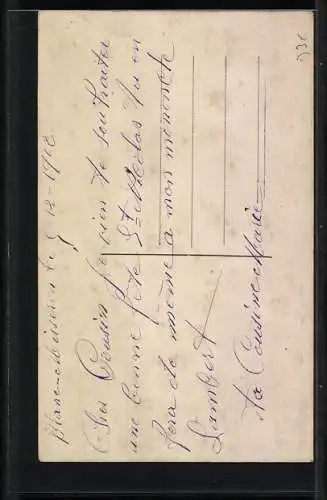 Blanc-Misseron le 5-12-1912
Cher Cousin Je vien te souhaiter
une bonne fête St Nicolas tu en
fera de même a mon momoncle
Lambert
Ta Cousine Marie
93€